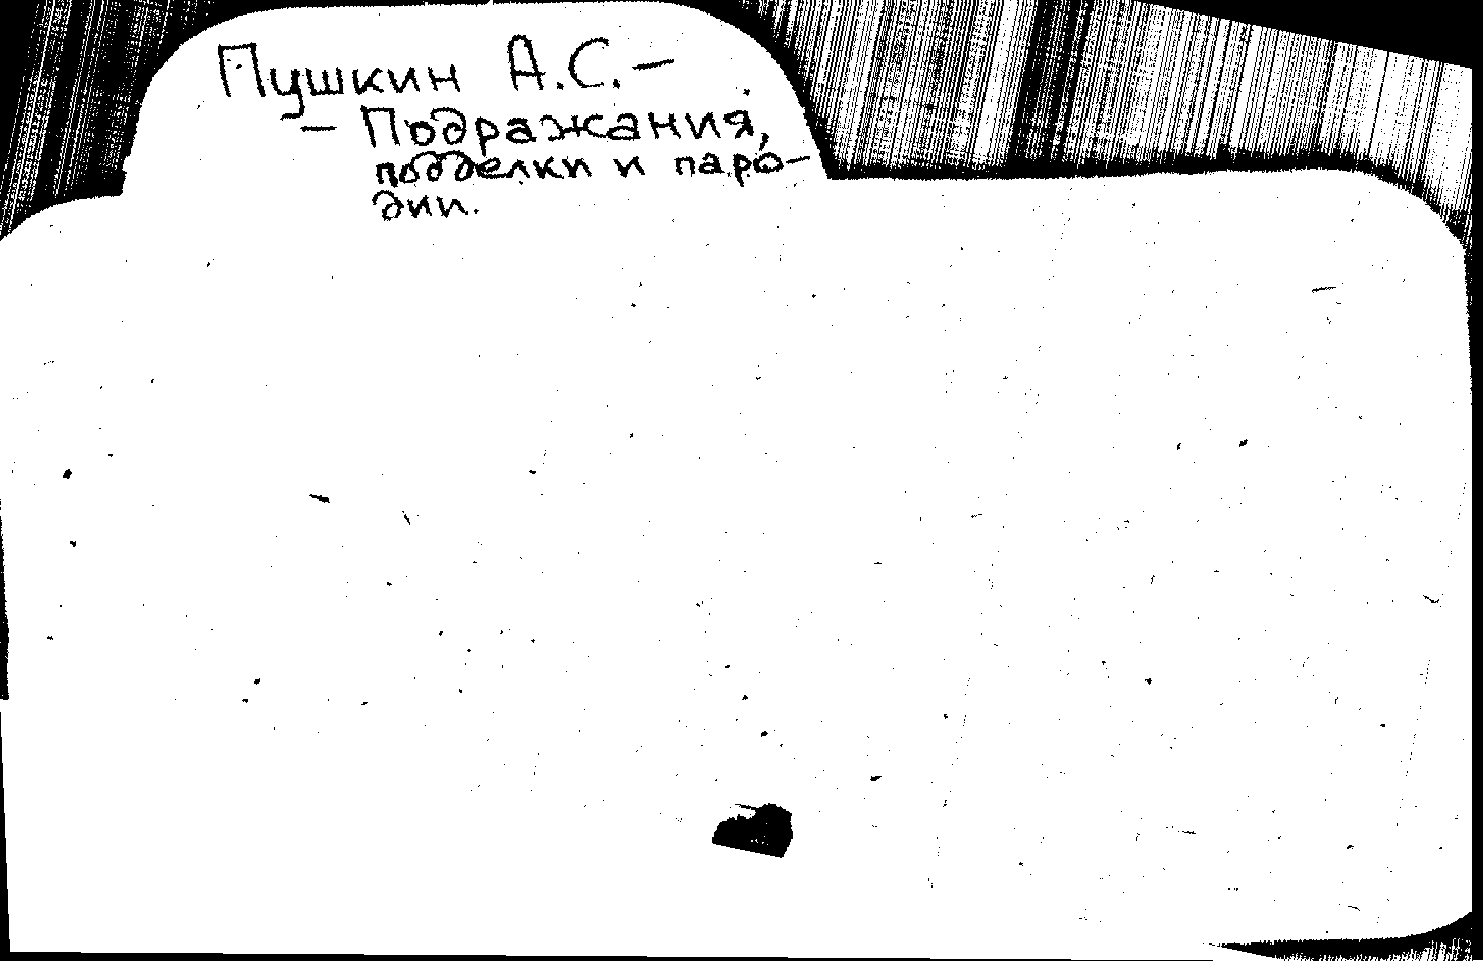 Пушкин А.С. —
— Подражания,
подделки и паро-
дии.